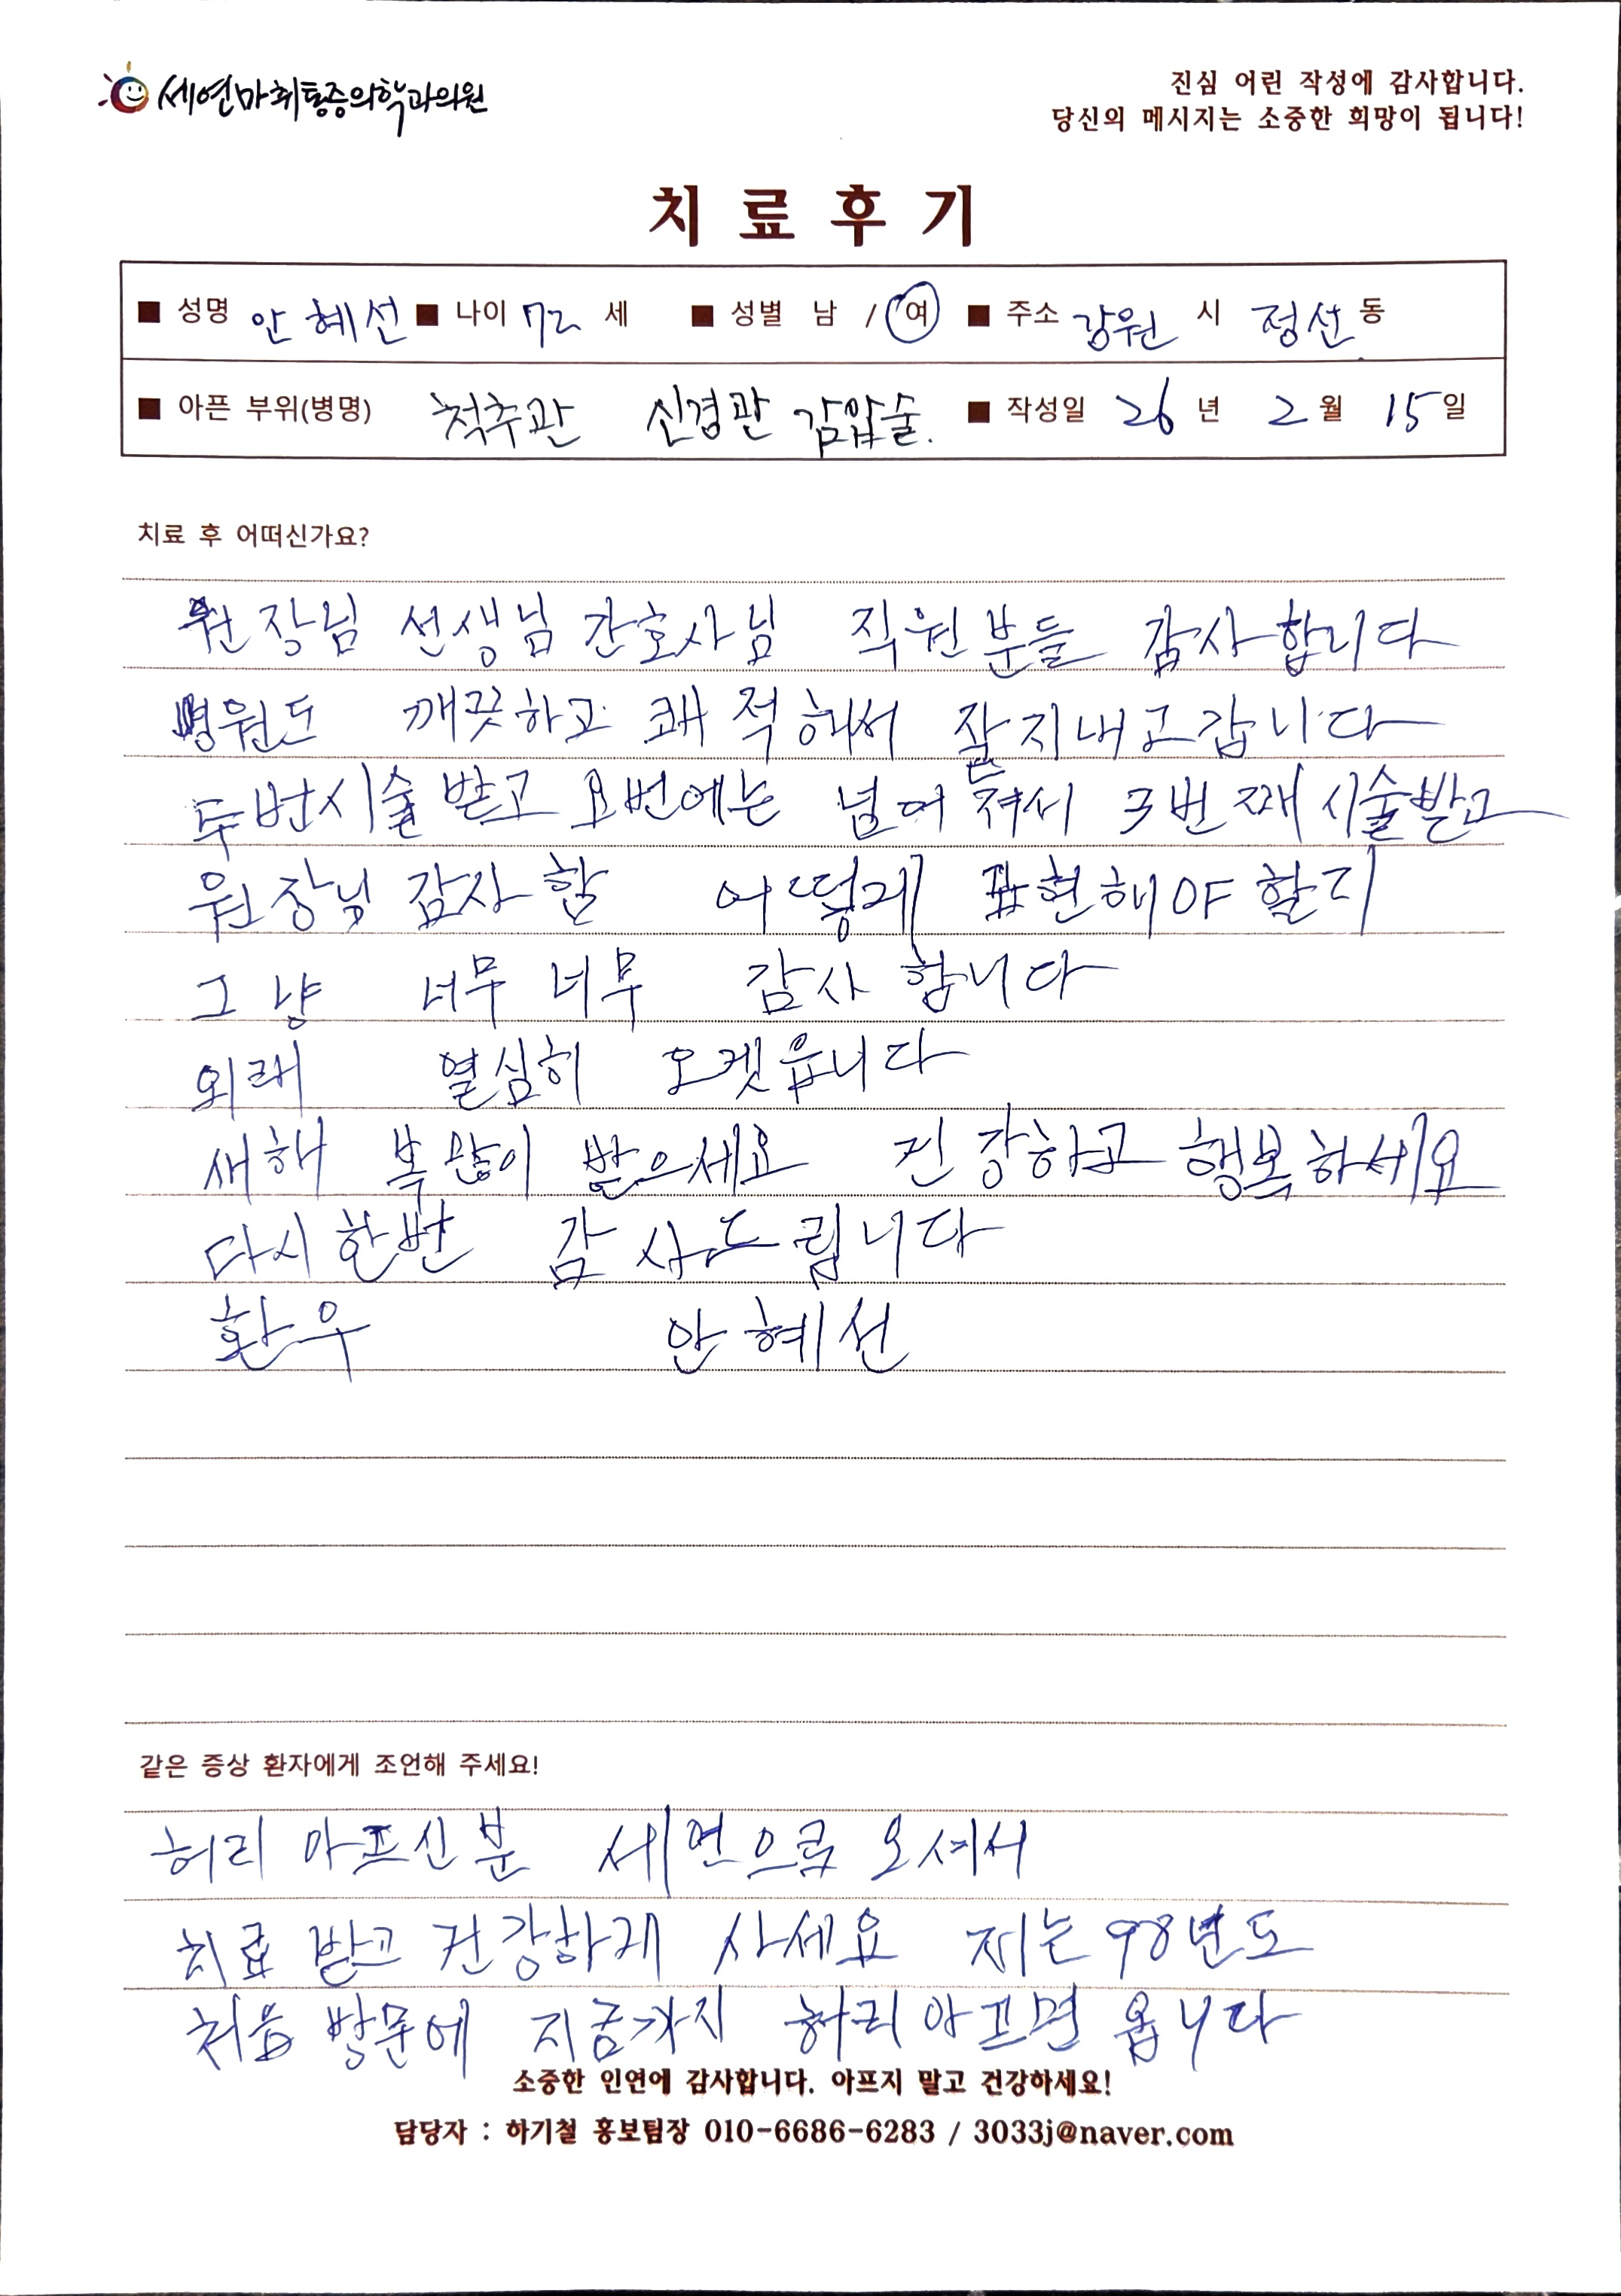 세연마취통증의학과의원
진심 어린 작성에 감사합니다.
당신의 메시지는 소중한 희망이 됩니다!
치료후기
■ 성명 안혜선 ■ 나이 72 세 ■ 성별 남 / 여 ■ 주소 강원 시 정선 동
■ 아픈 부위(병명) 척추관 신경관 감압술. ■ 작성일 26 년 2 월 15 일
치료 후 어떠신가요?
원장님 선생님 간호사님 직원분들 감사합니다
병원도 깨끗하고 쾌적해서 잘지내고갑니다
두번시술받고 요번에는 넘어져서 3번째시술받고
원장님 감사함 어떻게 표현해야할지
그냥 너무 너무 감사합니다
외래 열심히 오겟읍니다
새해 복많이 받으세요 건강하고 행복하세요
다시한번 감사드립니다
환우 안혜선
같은 증상 환자에게 조언해 주세요!
허리 아프신분 세연으로 오셔서
치료 받고 건강하게 사세요 저는 98년도
처음 방문에 지금까지 허리아프면 옵니다
소중한 인연에 감사합니다. 아프지 말고 건강하세요!
담당자 : 하기철 홍보팀장 010-6686-6283 / 3033j@naver.com